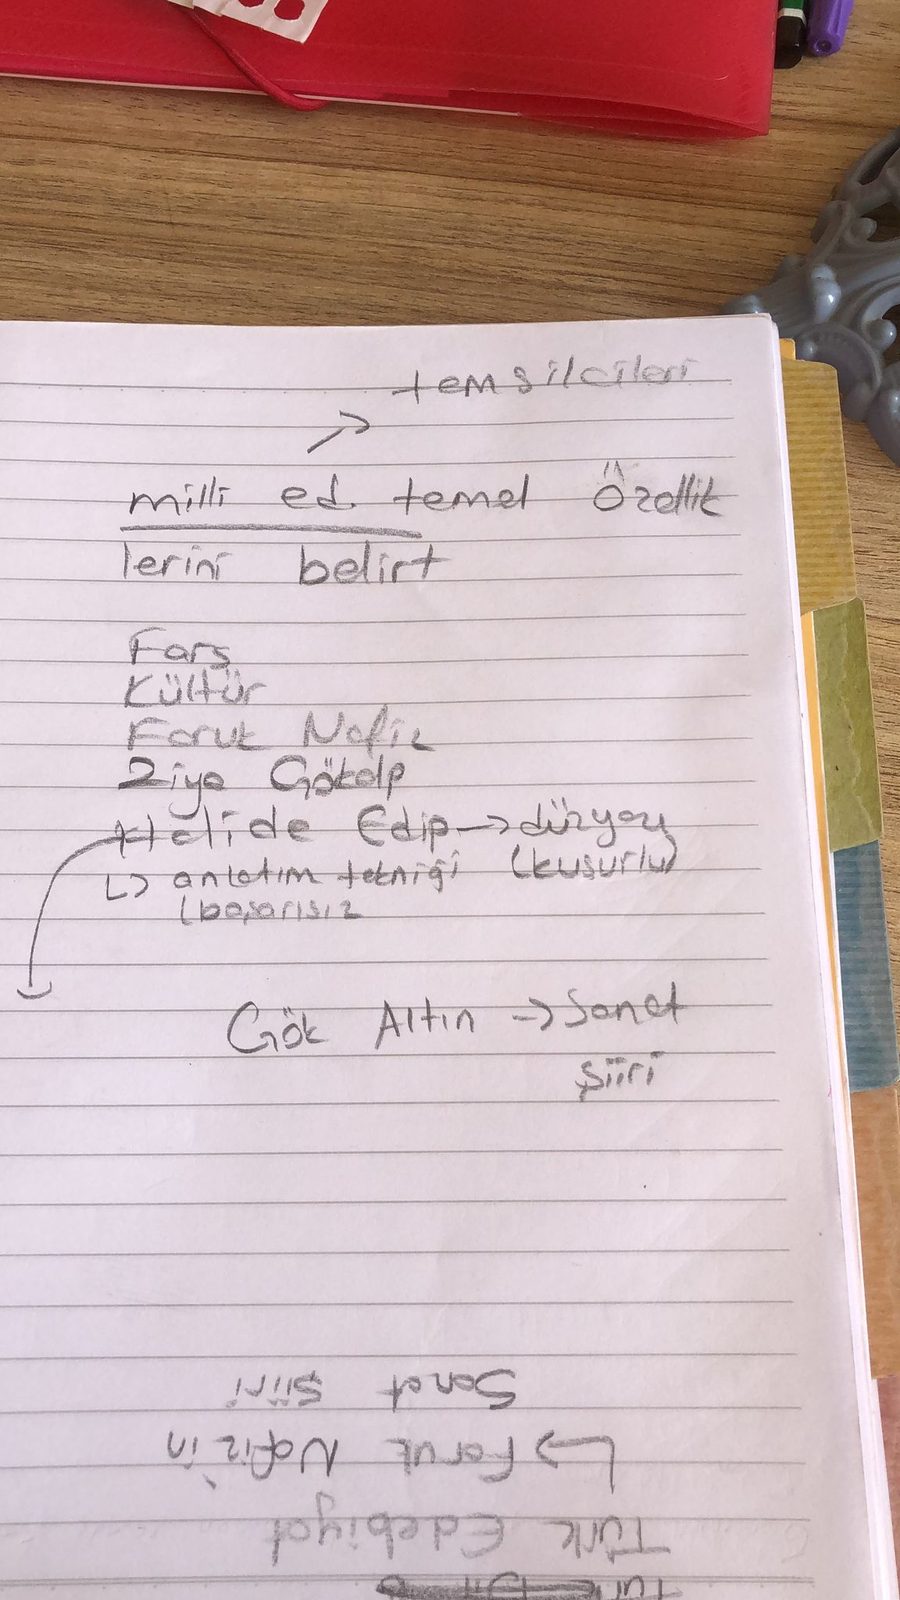 temsilcileri
milli ed. temel Özellik
lerini belirt
Fars
Kültür
Faruk Nafiz
Ziya Gökalp
Halide Edip → düzyazı
↳ anlatım tekniği (kusurlu)
(başarısız
Gök Altın → Sanat
şiiri
Türk Edebiyat
↳ Faruk Nafiz'in
Sanat şiiri